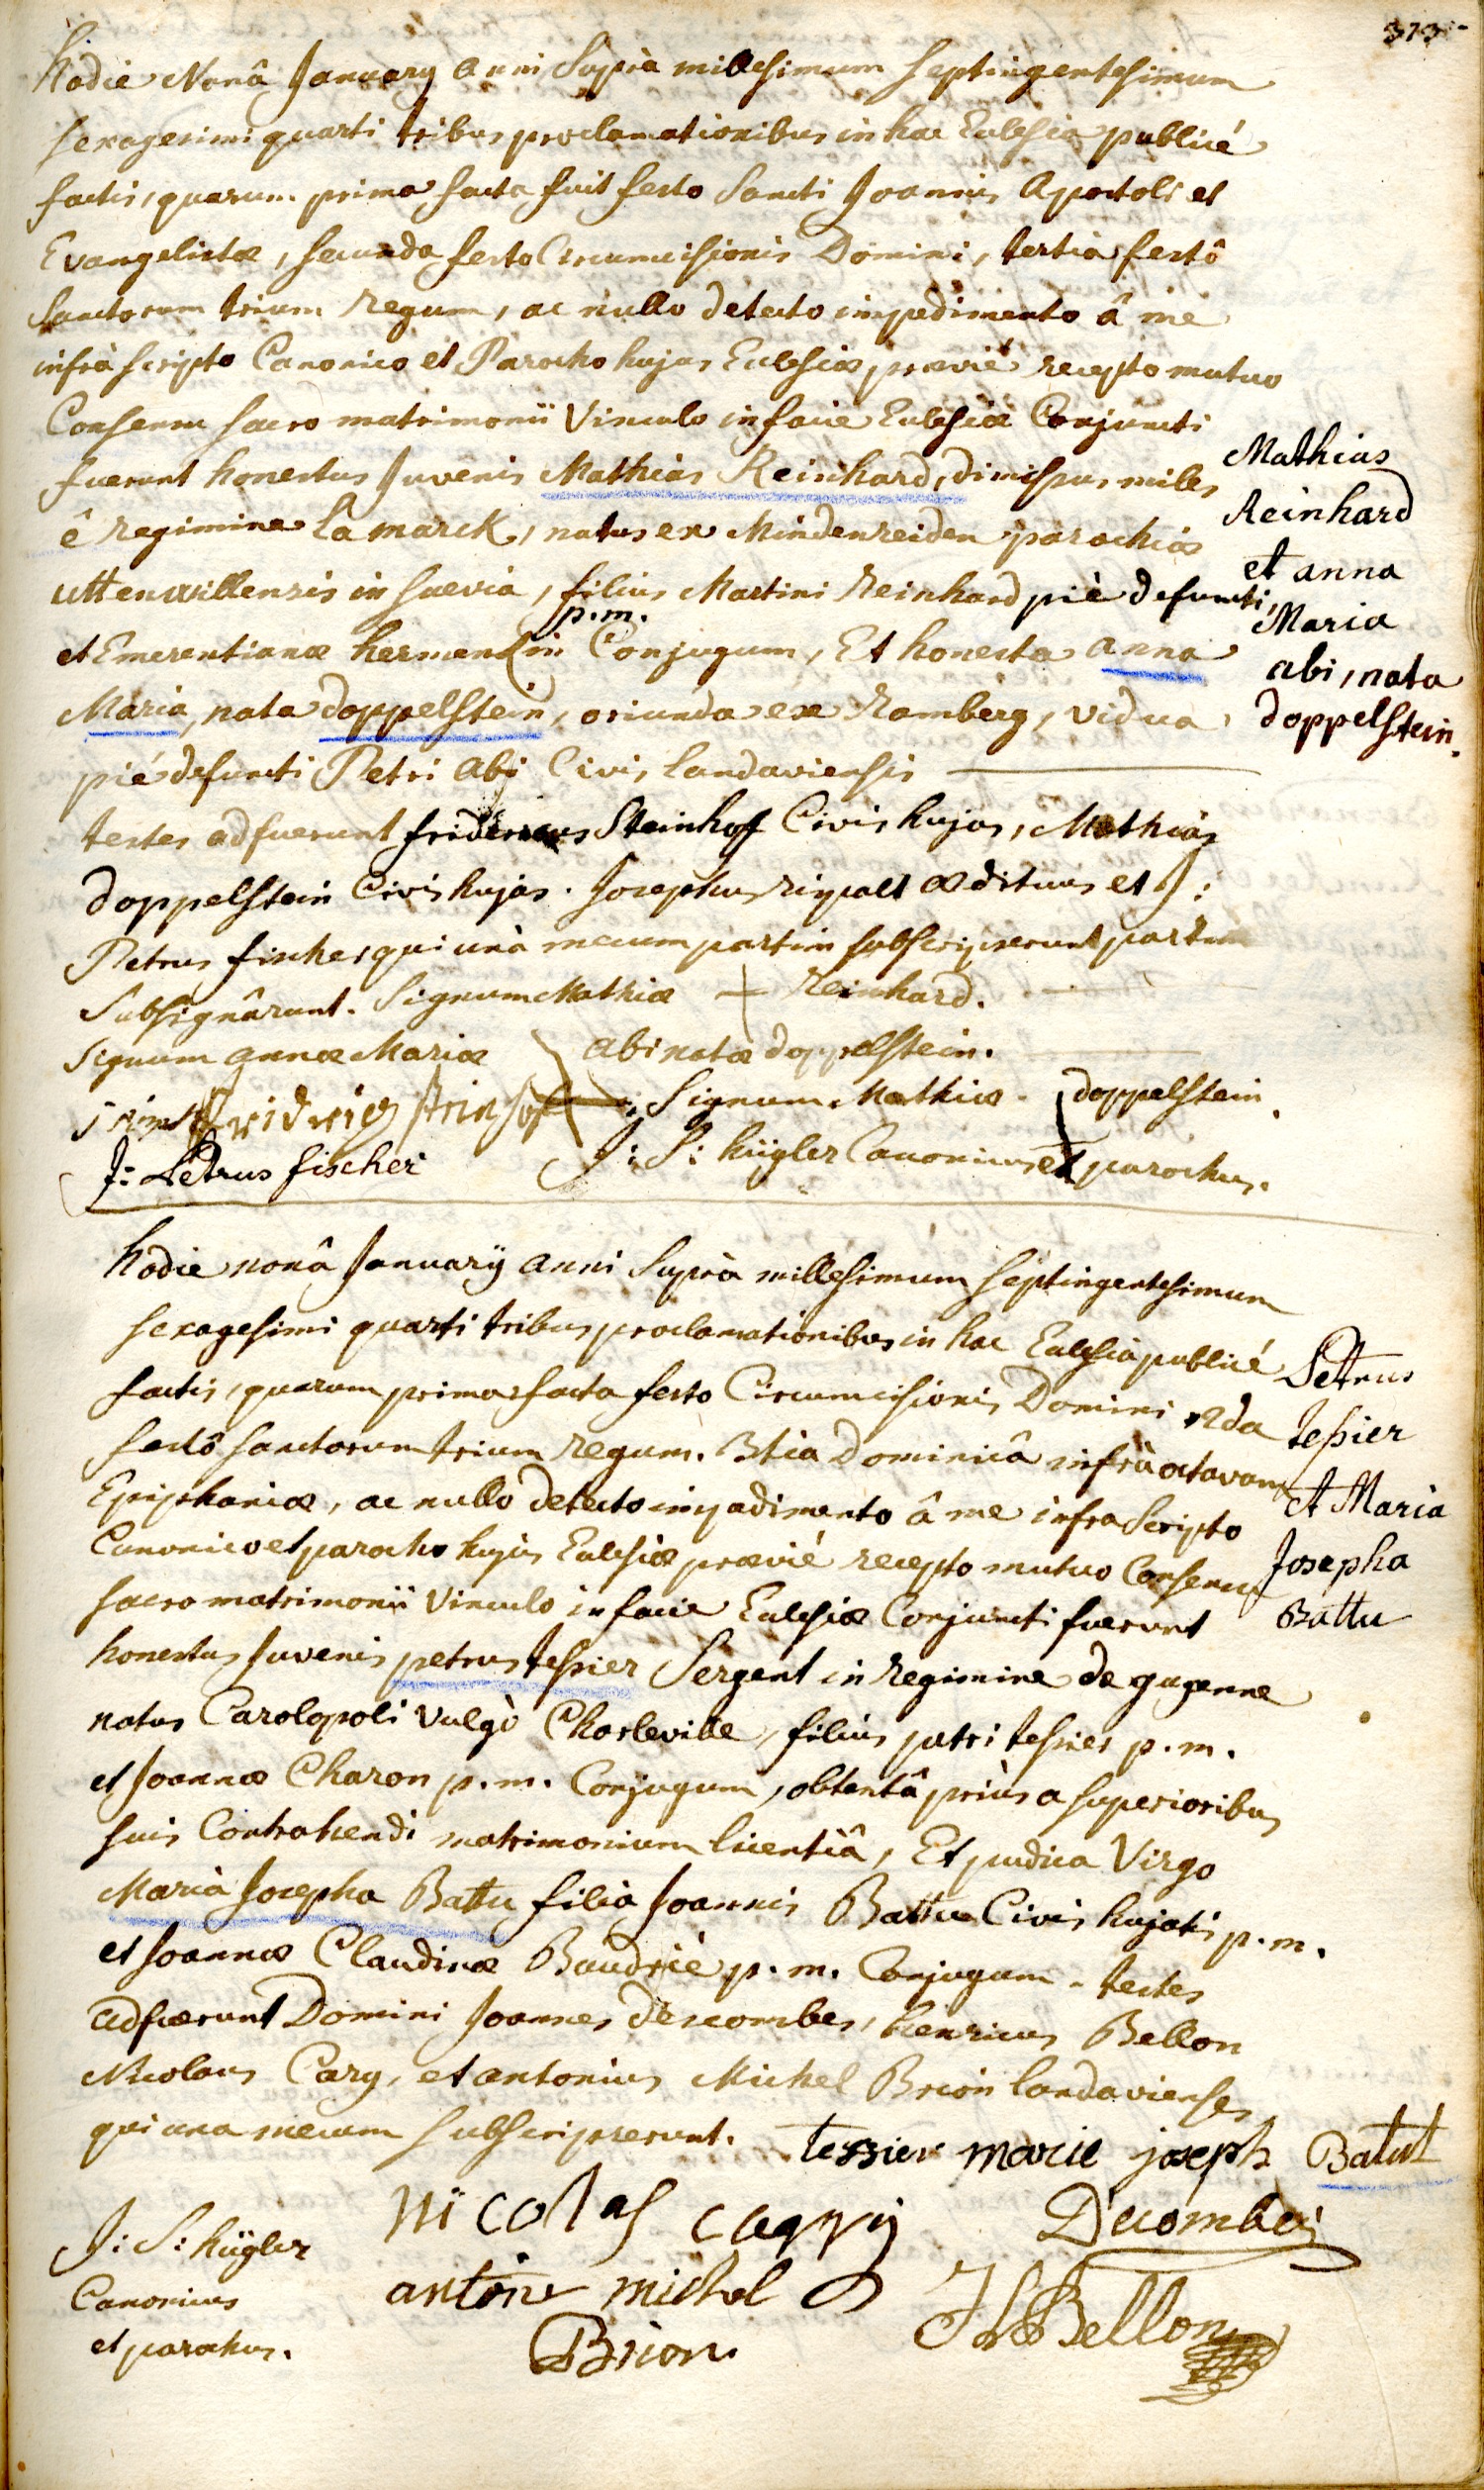 373
Hodie Nonâ January anni Suprà millesimum Septingentesimum
Sexagesimi quarti tribus proclamationibus in hac Ecclesia publicé
factis, quarum prima facta fuit festo Sancti Joannis Apostoli et
Evangelistæ, secunda festo Circumcisionis Domini, tertia festô
Sanctorum trium Regum, ac nullo detecto impedimento â me
infrà scripto Canonico et Parocho hujus Ecclesiæ, prævié recepto mutuo
Consensu sacro matrimonii Vinculo in facie Ecclesiæ Conjuncti
fuerunt honestus Juvenis Mathias Reinhard, dimissus miles
ê regimine la marck, natus ex Mindenreiden parochiæ
uttenwillensis in Suevia, filius Martini Reinhard piè defuncti,
p.m.
et Emerentianæ hermendin Conjugum, Et honesta anna
Maria, nata doppelstein, oriunda ex Ramberg, vidua
pié defuncti Petri Abi Civis landaviensis
testes adfuerunt fridericus Steinhof Civis hujas, Mathias
doppelstein Civis hujas. Josephus ripalt ædituus et J:
Petrus fischer, qui unà mecum partim subscripserunt partim
Subsignârunt. Signum Mathiæ + Reinhard.
Signum annæ Mariæ abi natæ doppelstein.
fridrig steinhof Signum Mathiæ doppelstein.
J: Petrus fischer J: S: hügler Canonicus et parochus.
Mathias
Reinhard
et anna
Maria
abi, nata
doppelstein.
hodie nonâ Januarÿ anni Suprà millesimum Septingentesimum
Sexagesimi quarti tribus proclamationibus in hac Ecclesia publicé
factis, quarum prima facta festo Circumcisionis Domini 2da
festô Sanctorum trium Regum. 3tia Dominicâ infrà octavam
Epiphaniæ, ac nullo detecto impedimento â me infra Scripto
Canonico et parocho hujus Ecclesiæ prævié recepto mutuo Consensu
sacro matrimonii Vinculo in facie Ecclesiæ Conjuncti fuerunt
honestus Juvenis petrus tessier Sergent in regimine de guyenne
natus Carolopoli vulgò Charleville, filius petri tessier p.m.
et Joannæ Charon p.m. Conjugum, obtentâ priùs a superioribus
suis Contrahendi matrimonium licentiâ, Et pudica Virgo
Maria Josepha Battu filia Joannis Battu Civis hujatis p.m.
et Joannæ Claudinæ Baudrié p.m. Conjugum. testes
adfuerunt Domini Joannes descombes, henricus Bellon
Nicolaus Cary, et antonius Michel Brion landavienses
qui una mecum subscripserunt. tessier marie joseph Batut
Petrus
tessier
et Maria
Josepha
Battu
J: S: hügler
Canonicus
et parochus.
Nicolas carry
Decombes
antoine michel
Brion
H Bellon